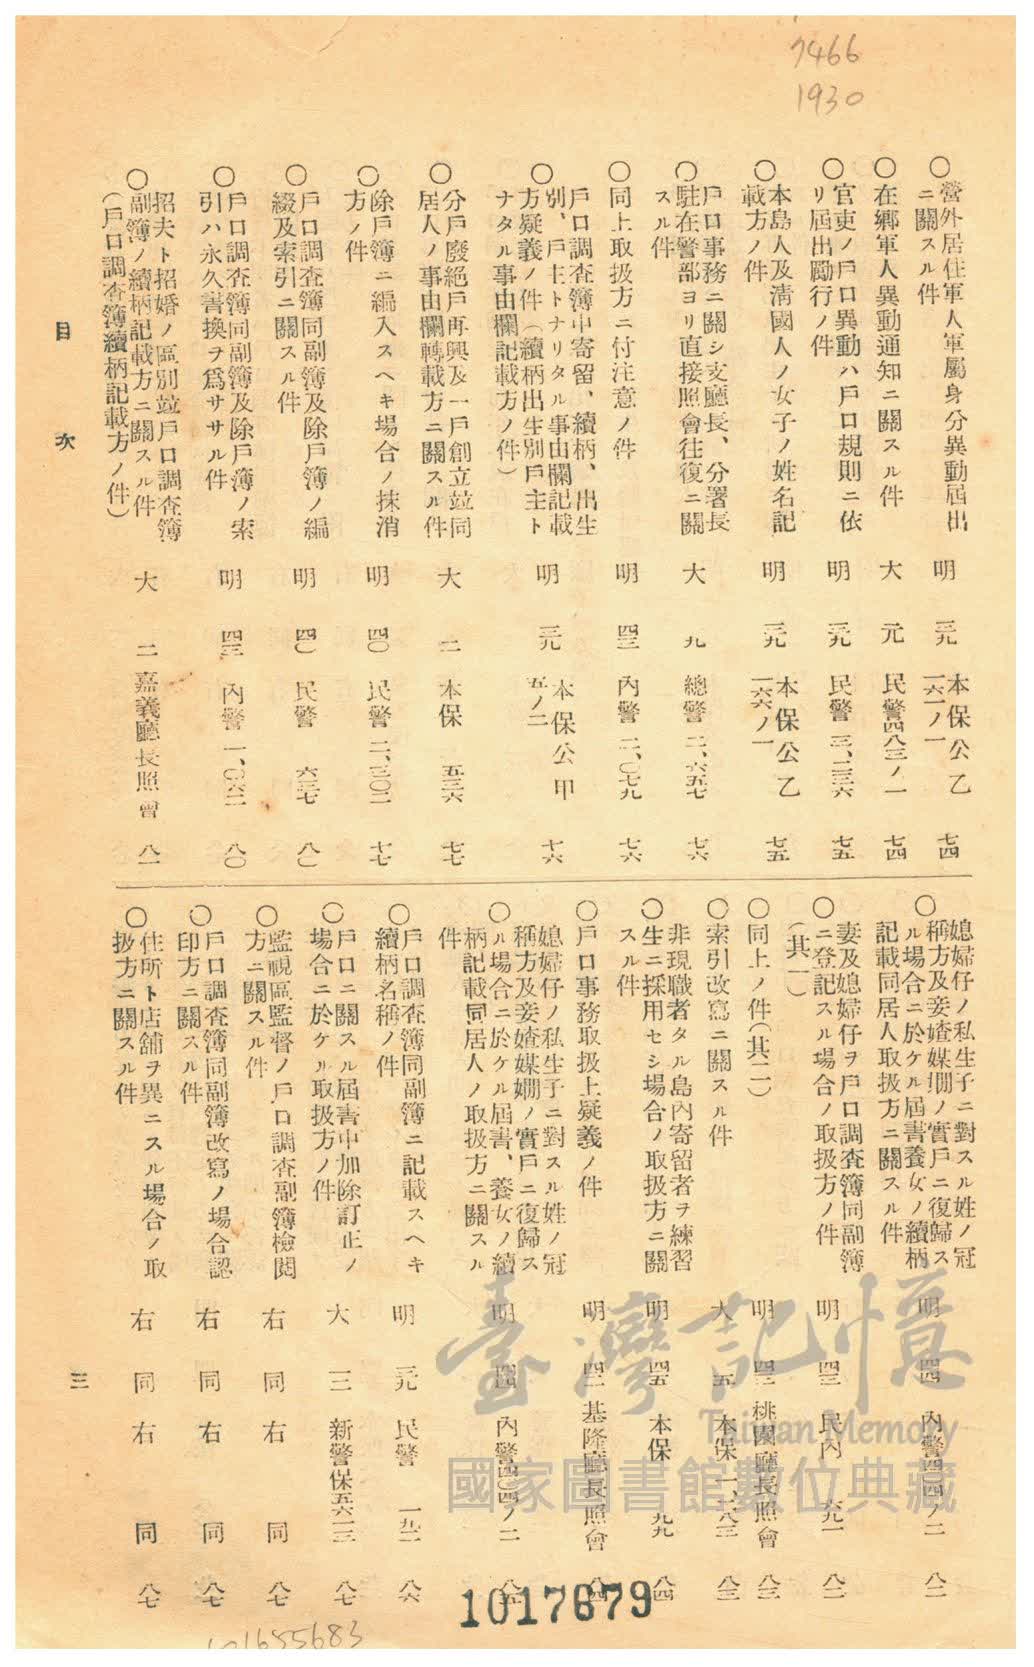 7466
1930
○營外居住軍人軍屬身分異動屆出
ニ關スル件
明 三九 本保公乙
一六ノ一
七四
○在鄉軍人異動通知ニ關スル件
大 元 民警四八三ノ一 七四
○官吏ノ戶口異動ハ戶口規則ニ依
リ屆出勵行ノ件
明 三九 民警 三、三三六 七五
○本島人及淸國人ノ女子ノ姓名記
載方ノ件
明 三九 本保公乙
一六ノ一
七五
○戶口事務ニ關シ支廳長、分署長
駐在警部ヨリ直接照會往復ニ關
スル件
大 九 總警 二、六五七 七六
○同上取扱方ニ付注意ノ件
明 四三 內警 二、〇七九 七六
○戶口調査簿中寄留、續柄、出生
別、戶主トナリタル事由欄記載
方疑義ノ件(續柄出生別戶主ト
ナタル事由欄記載方ノ件)
明 三九 本保公甲
五ノ二
七六
○分戶廢絕戶再興及一戶創立竝同
居人ノ事由欄轉載方ニ關スル件
大 二 本保 五三六 七七
○除戶簿ニ編入スヘキ場合ノ抹消
方ノ件
明 四〇 民警 二、三〇二 七七
○戶口調査簿同副簿及除戶簿ノ編
綴及索引ニ關スル件
明 四〇 民警 六三七 八〇
○戶口調査簿同副簿及除戶簿ノ索
引ハ永久書換ヲ爲ササル件
明 四三 內警 一、〇六二 八〇
○招夫ト招婚ノ區別竝戶口調査簿
副簿ノ續柄記載方ニ關スル件
(戶口調査簿續柄記載方ノ件)
大 二 嘉義廳長照會 八一
○媳婦仔ノ私生子ニ對スル姓ノ冠
稱方及妾媎媒嫺ノ實戶ニ復歸ス
ル場合ニ於ケル屆書養女ノ續柄
記載同居人取扱方ニ關スル件
明 四四 內警四〇四ノ二 八二
○妻及媳婦仔ヲ戶口調査簿同副簿
ニ登記スル場合ノ取扱方ノ件
(其一)
明 四三 民內 六九一 八二
○同上ノ件(其二)
明 四三 桃園廳長照會 八三
○索引改寫ニ關スル件
大 五 本保 一、六八三 八三
○非現職者タル島內寄留者ヲ練習
生ニ採用セシ場合ノ取扱方ニ關
スル件
明 四五 本保 九九 八四
○戶口事務取扱上疑義ノ件
明 四二 基隆廳長照會 八四
○媳婦仔ノ私生子ニ對スル姓ノ冠
稱方及妾媎媒嫺ノ實戶ニ復歸ス
ル場合ニ於ケル屆書、養女ノ續
柄記載同居人ノ取扱方ニ關スル
件
明 四四 內警四〇四ノ二 八五
○戶口調査簿同副簿ニ記載スヘキ
續柄名稱ノ件
明 三九 民警 一九二 八六
○戶口ニ關スル屆書中加除訂正ノ
場合ニ於ケル取扱方ノ件
大 一三 新警保五六一三 八七
○監視區監督ノ戶口調査副簿檢閱
方ニ關スル件
右 同 右 同 八七
○戶口調査簿同副簿改寫ノ場合認
印方ニ關スル件
右 同 右 同 八七
○住所ト店舖ヲ異ニスル場合ノ取
扱方ニ關スル件
右 同 右 同 八七
目 次
三
臺灣記憶
Taiwan Memory
國家圖書館數位典藏
1017679